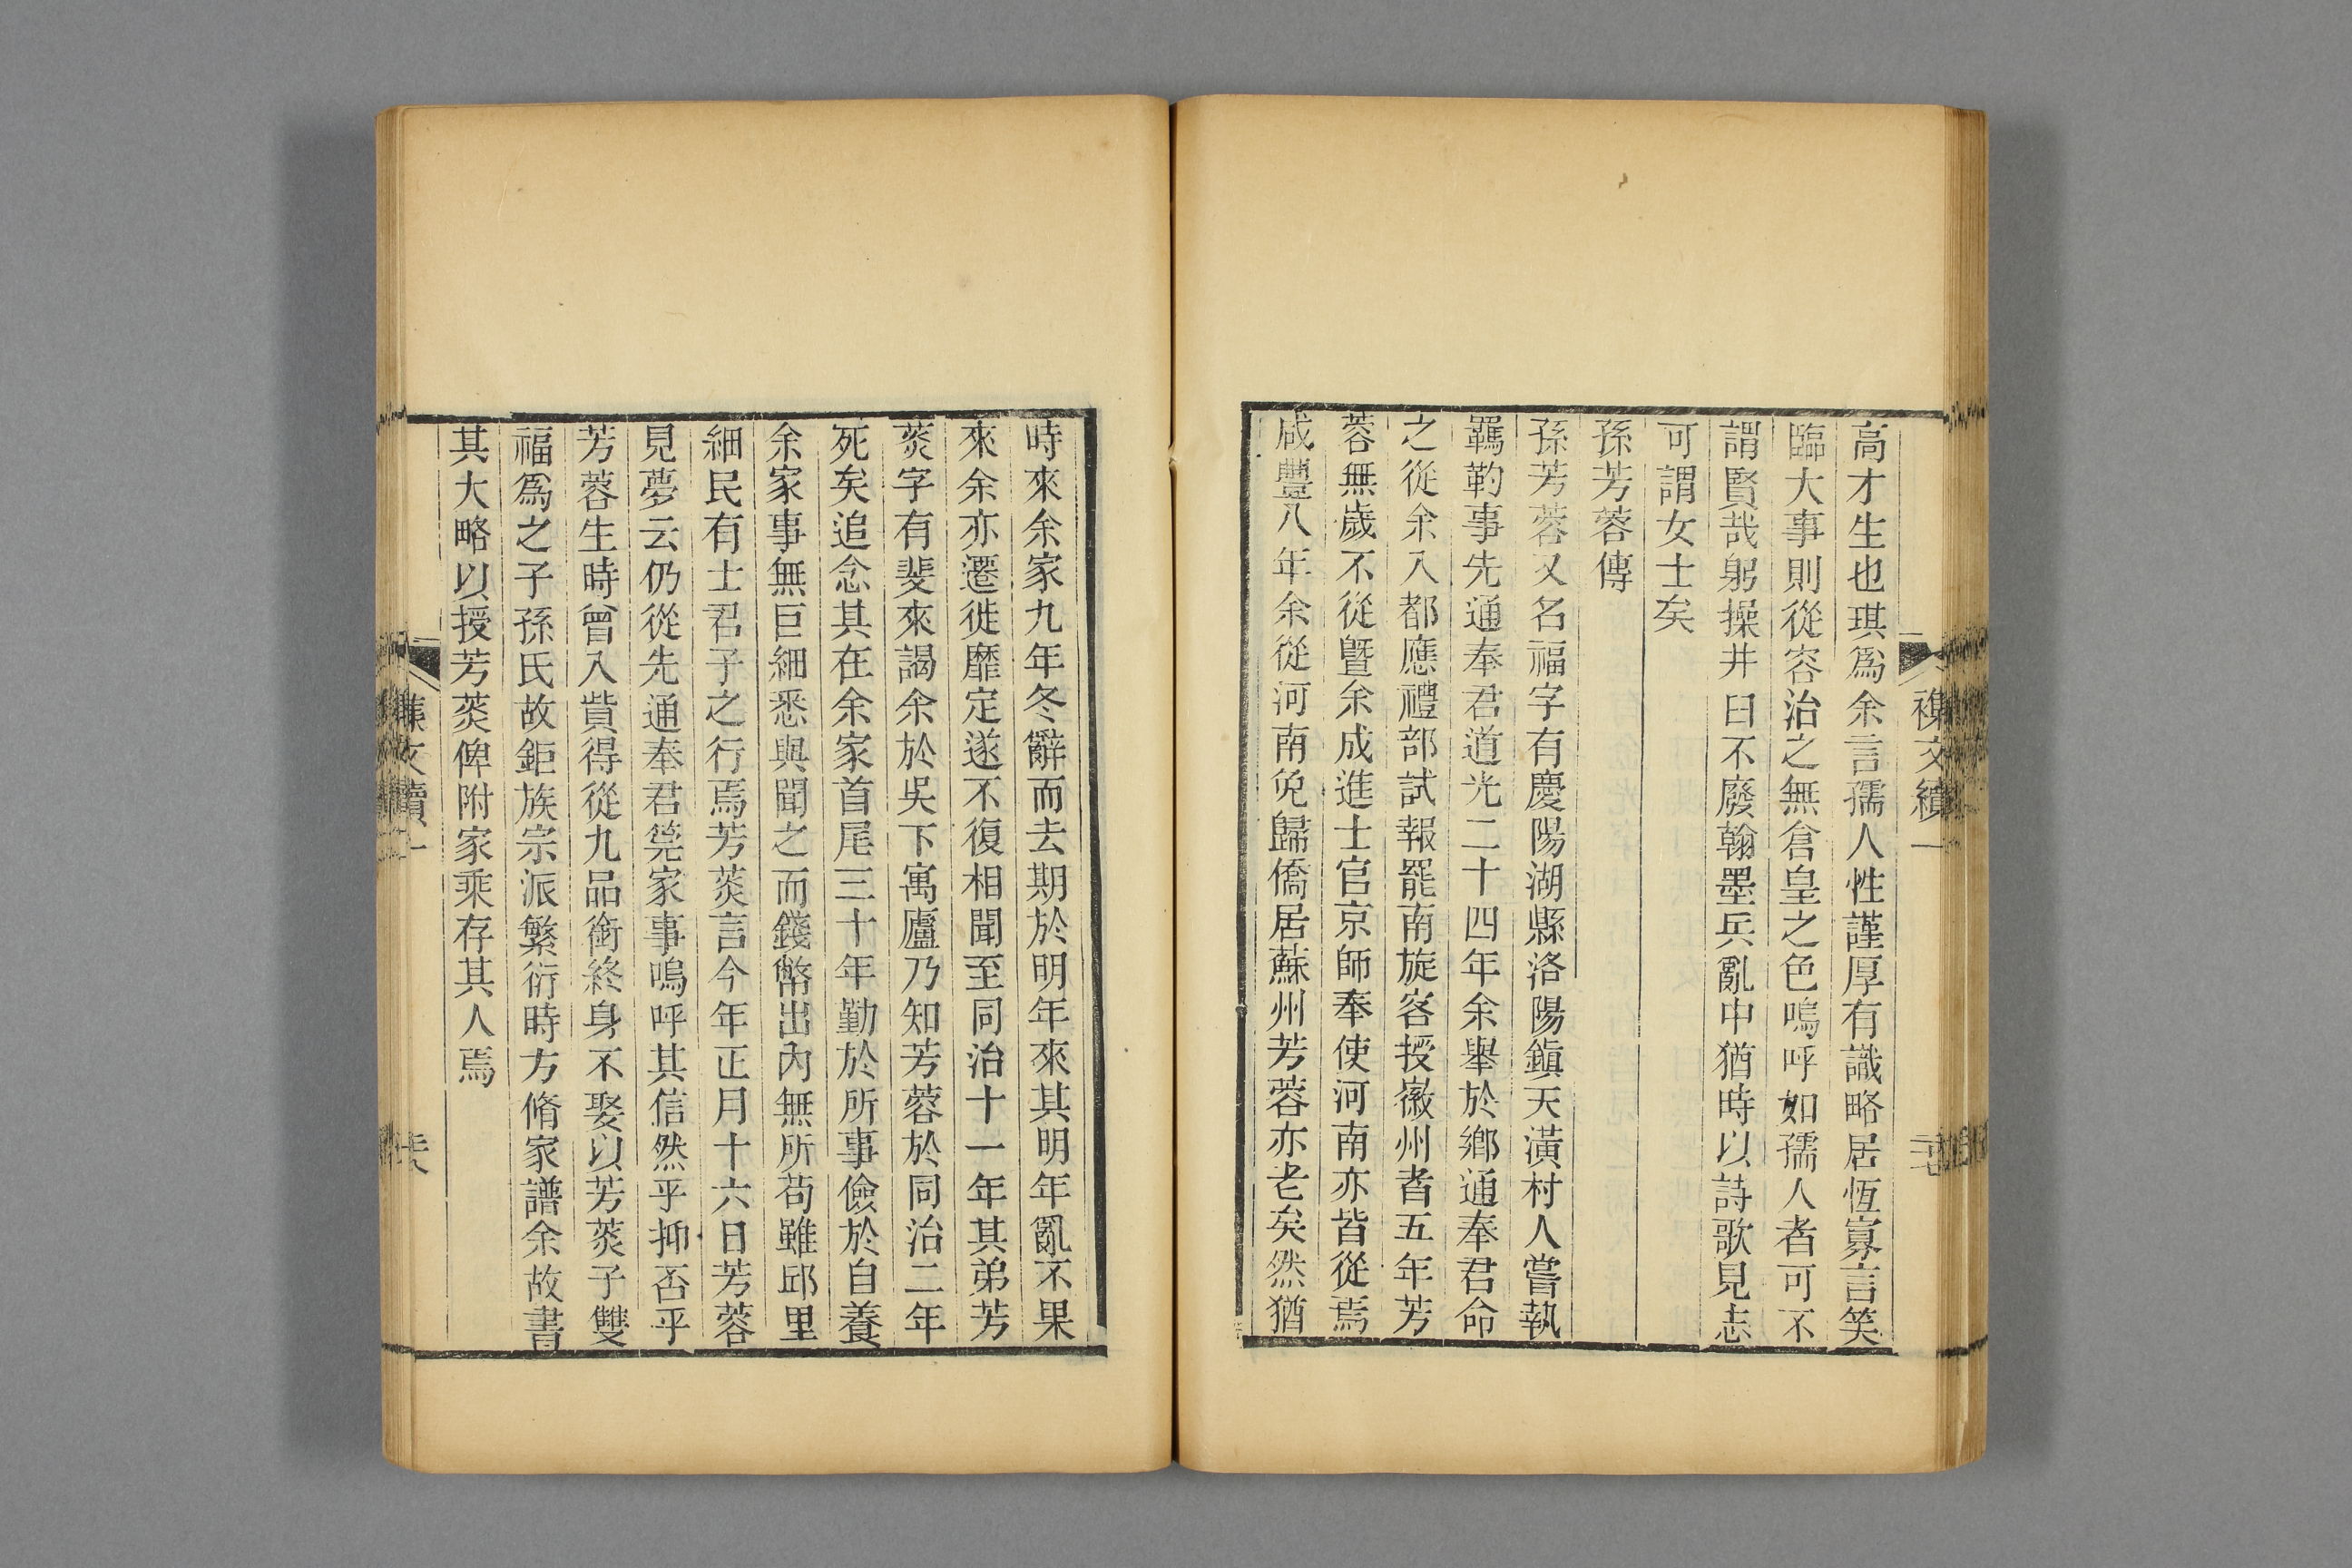 襍文續一
高才生也琪爲余言孺人性謹厚有識略居恆寡言笑
臨大事則從容治之無倉皇之色嗚呼如孺人者可不
謂賢哉躬操井臼不廢翰墨兵亂中猶時以詩歌見志
可謂女士矣
孫芳蓉傳
孫芳蓉又名福字有慶陽湖縣洛陽鎭天潢村人嘗執
羈靮事先通奉君道光二十四年余舉於鄉通奉君命
之從余入都應禮部試報罷南旋客授徽州者五年芳
蓉無歲不從暨余成進士官京師奉使河南亦皆從焉
咸豐八年余從河南免歸僑居蘇州芳蓉亦老矣然猶
時來余家九年冬辭而去期於明年來其明年亂不果
來余亦遷徙靡定遂不復相聞至同治十一年其弟芳
葵字有斐來謁余於吳下寓廬乃知芳蓉於同治二年
死矣追念其在余家首尾三十年勤於所事儉於自養
余家事無巨細悉與聞之而錢幣出內無所苟雖邱里
細民有士君子之行焉芳葵言今年正月十六日芳蓉
見夢云仍從先通奉君筦家事嗚呼其信然乎抑否乎
芳蓉生時曾入貲得從九品銜終身不娶以芳葵子雙
福爲之子孫氏故鉅族宗派繁衍時方脩家譜余故書
其大略以授芳葵俾附家乘存其人焉